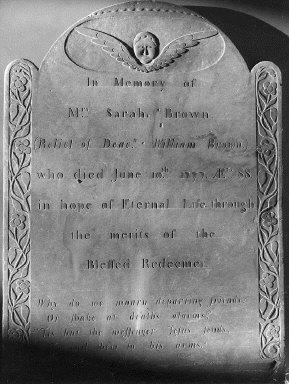 In Memory of
Mrs. Sarah. Brown.
(Relict of Deac.n William Brown,)
who died June 10th. 1777, Æt. 88
in hope of Eternal Life through
the merits of the
Blessed Redeemer.
Why do we mourn departing friends,
Or shake at deaths alarms,
'Tis but the messenger Jesus sends,
in his arms.